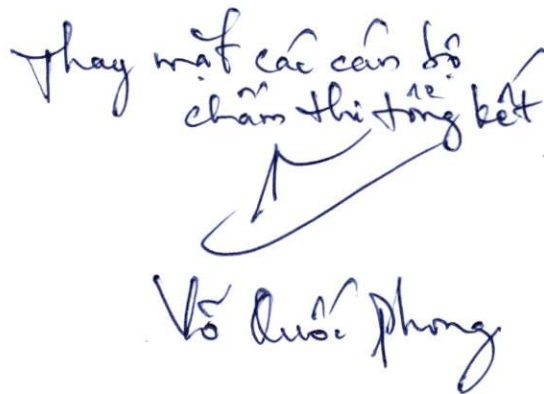 Thay mặt các cán bộ
chấm thi tổng kết
Võ Quốc Phong